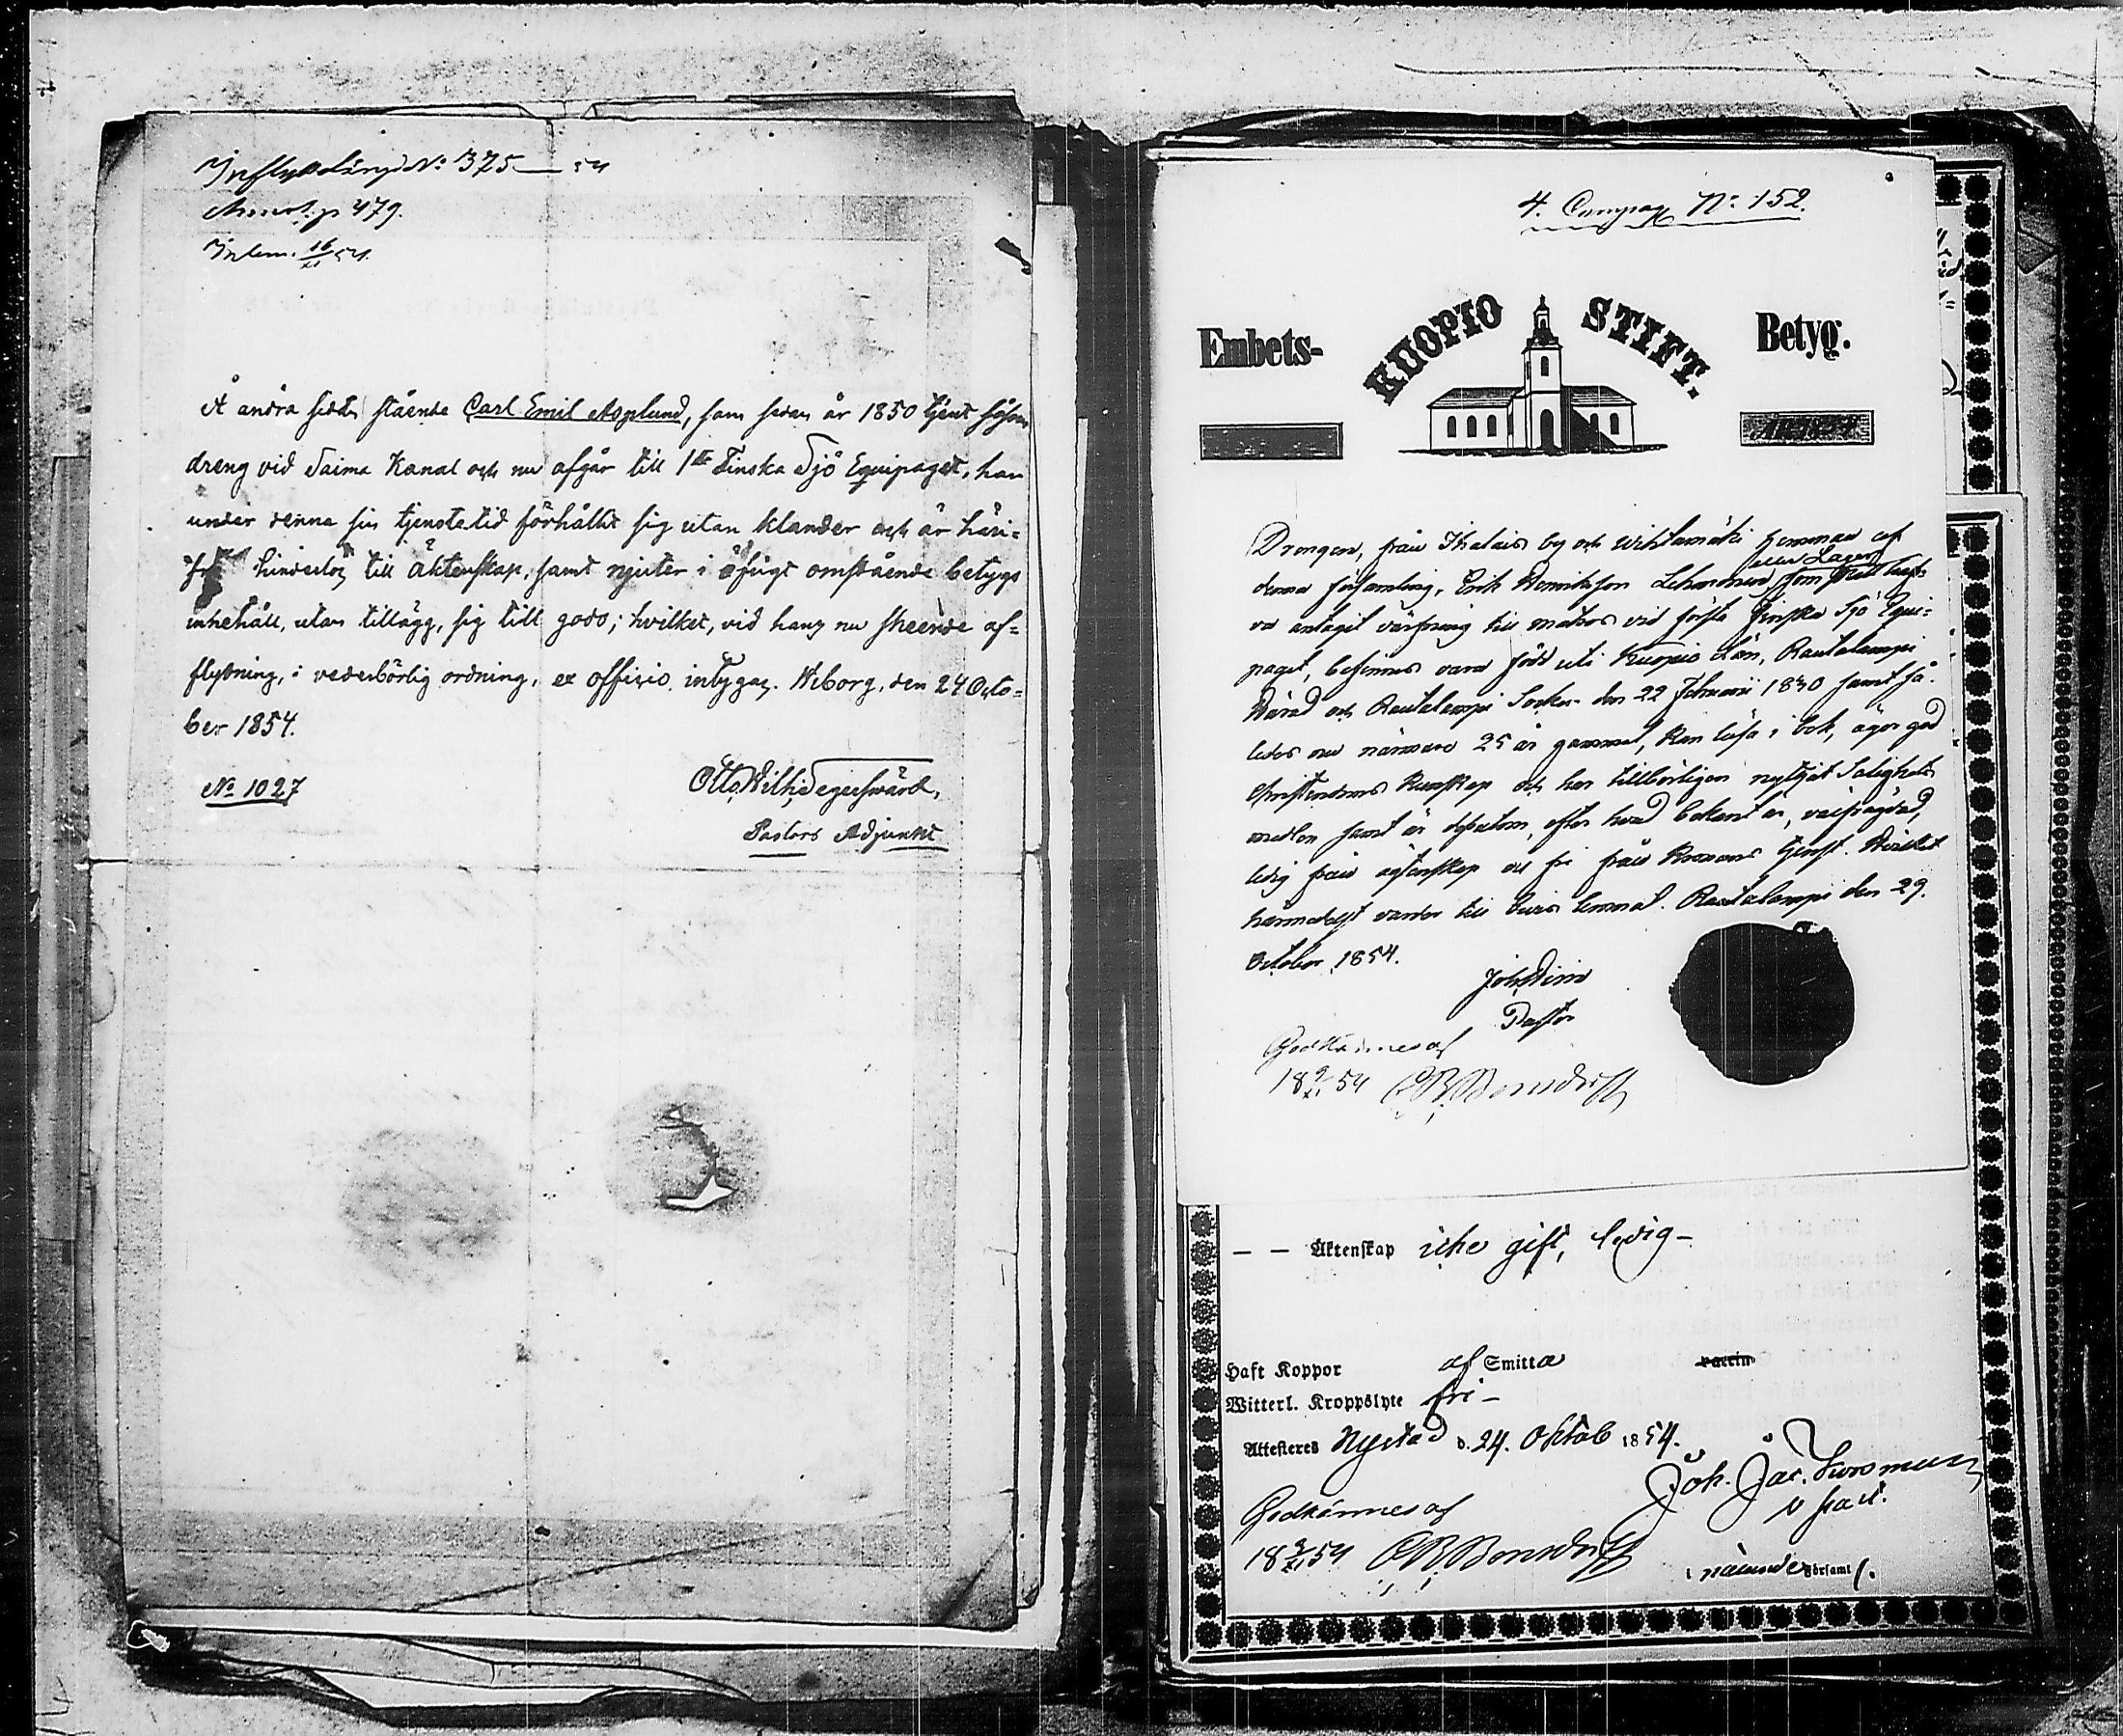 Inflyttn.längd No 375 — 54
Annot. p 479.
Inlem. 16/XI 54.
Å andra sidan stående Carl Emil Asplund, som sedan år 1850 tjent såsom
dreng vid Saima Kanal och nu afgår till 1sta Finska Sjö Equipaget, har
under denna sin tjenstetid förhållit sig utan klander och är häri-
från hinderlös till äktenskap, samt njuter i öfrigt omstående betygs
inhehåll, utan tillägg, sig till godo; hvilket, vid hans nu skeende af-
flyttning, i vederbörlig ordning, ex officio intygas. Wiborg, den 24 Octo-
ber 1854.
No 1027
Otto Wilh. Segersvärd,
Pastors Adjunkt
4. Compag No 152.
Embets- KUOPIO STIFT. Betyg.
Drengen, från Ihalais by och Wihtamäki hemman af
eller Lager
denna församling, Erik Henriksson Lehmonen som
va antagit värfning till matros vid första Finska Sjö Equi-
paget, befinnes vara född uti Kuopio Län, Rautalampi
Härad och Rautalampi Socken den 22 Februarii 1830 samt så-
ledes nu närmare 25 år gammal, kan läsa i bok, äger god
Christendoms kunskap och har tillbörligen nyttjat Salighets
medlen samt är dessutom, efter hvad bekant är, välfrägdad,
ledig från ägtenskap och fri från Kronans tjenst. Hvilket
härmedelst varder till bevis lemnat. Rautalampi den 29.
October 1854.
Pastor
Godkännes af
18 9/XI 54 C R Bonsdorff
— — Äktenskap icke gift, ledig —
Haft Koppor af Smitta vaccin
Witterl. Kroppslyte fri —
Attesteres Nystad d. 24. Oktob 1854.
Joh. Jac.
v past.
Godkännes af
18 9/XI 54 C R Bonsdorff
i nämnde Församl.